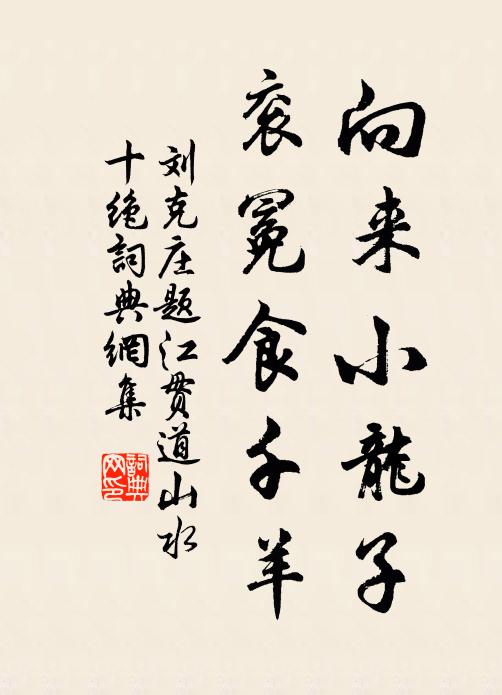 向来小龍子
衮冕食千羊
刘克庄题江贯道山水
十绝詞典網集
詞典网印